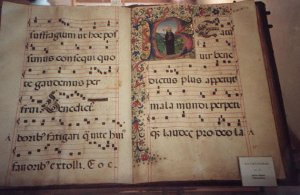 suffragium ut hoc pos
simus consequi quo
te gaudemus per
frui Benedict
boribꝰ fatigari q
fauoribꝰ extolli. E o c.
uir bene
dictus plus appetijt
mala mundi perpeti
qꝫ laudes pro deo la